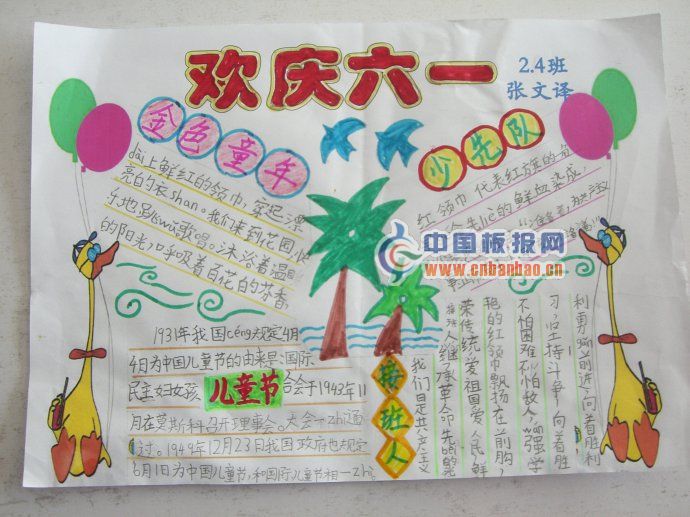 欢庆六一
2.4班
张文译
金色童年
dài上鲜红的领巾,穿起漂
亮的衣shan。我们来到花园,快
乐地跳wǔ歌唱。沐浴着温
的阳光,呼吸着百花的芬香。
少先队
红领巾代表红旗的
的鲜血染成
中国板报网
www.cnbanbao.cn
1931年我国céng规定4月
4日为中国儿童节的由来是:国际
民主妇女
儿童节
合会于1943年11
月在莫斯科召开理事会。大会一zhì通
过。1949年12月23日我国政府也规定
6月1日为中国儿童节,和国际儿童节相一zhì。
接班人
我们是共产主义
接班人,继承革命先bèi的光
荣传统,爱祖国爱人民,鲜
艳的红领巾飘扬在前胸,
不怕困难不怕敌人,wán强学
习,坚持斗争,向着胜
利勇gǎn前进,向着胜利